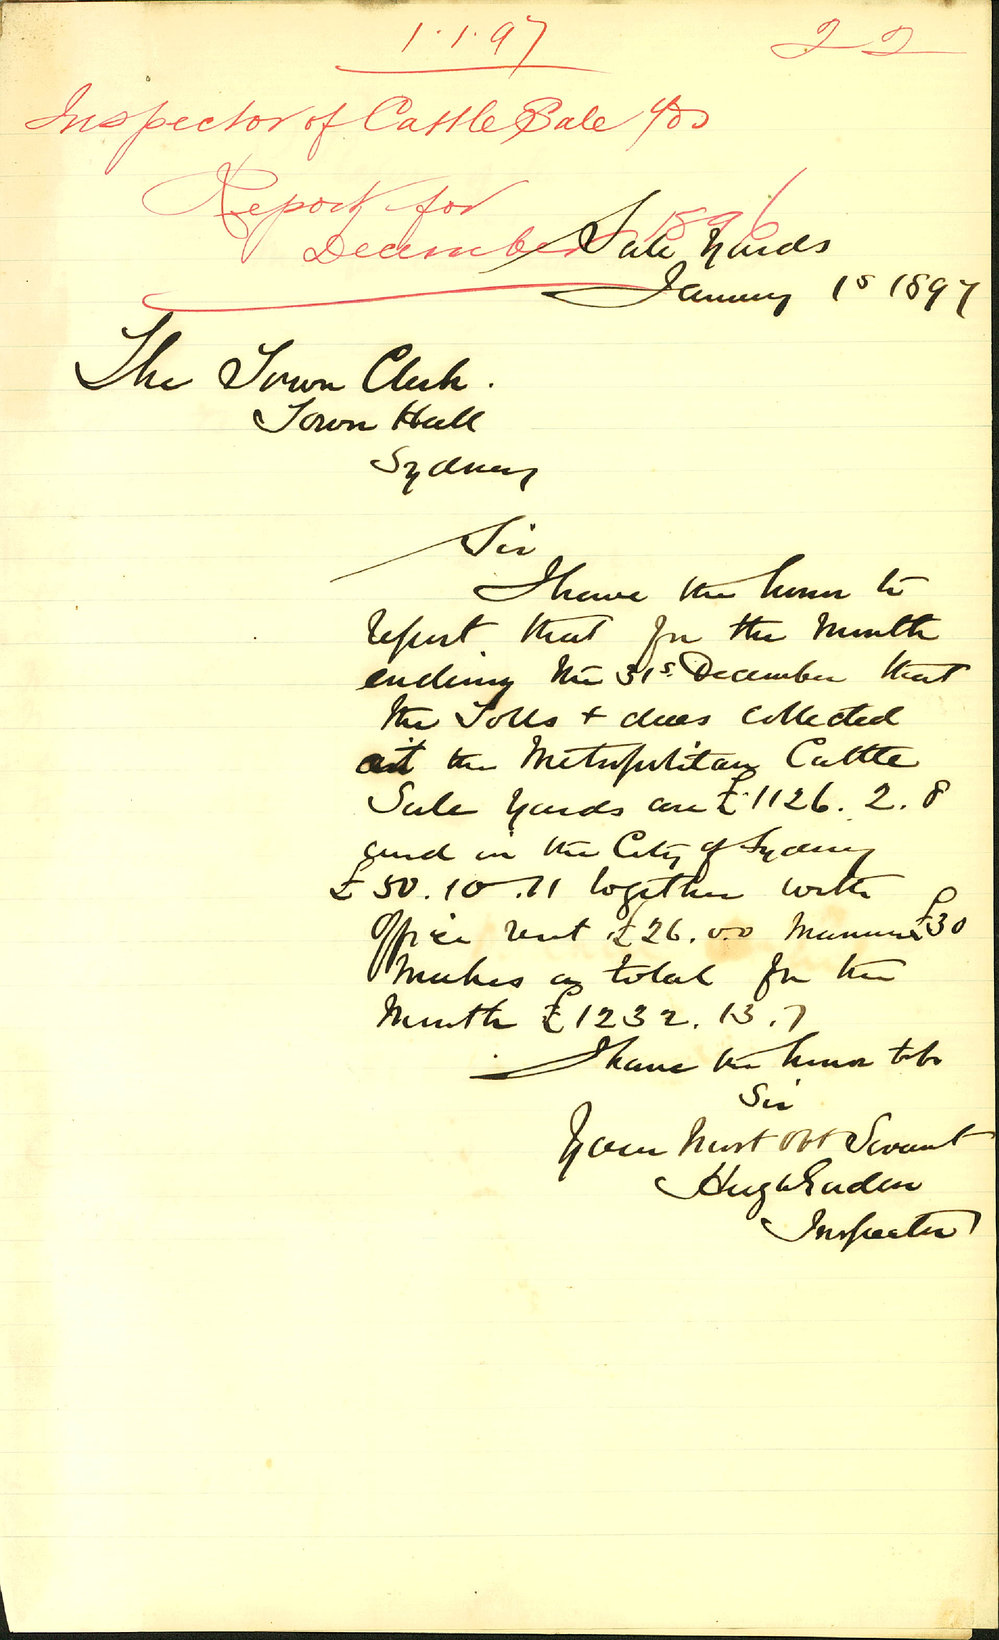 1.1.97
22
Inspector of Cattle Sale Yds
Report for
December 1896
Sale Yards
January 1s 1897
The Town Clerk.
Town Hall
Sydney
Sir
I have the honor to
report that for the Month
ending the 31s. December that
the Tolls + dues collected
at the Metropolitan Cattle
Sale Yards are £1126. 2. 8
and in the City of Sydney
£50.10.11 together with
Office rent £26.0.0 Manure £30
Makes a total for the
Month £1232. 13. 7
I have the honor to be
Sir
Your Most Obt Servant
Hugh
Inspector